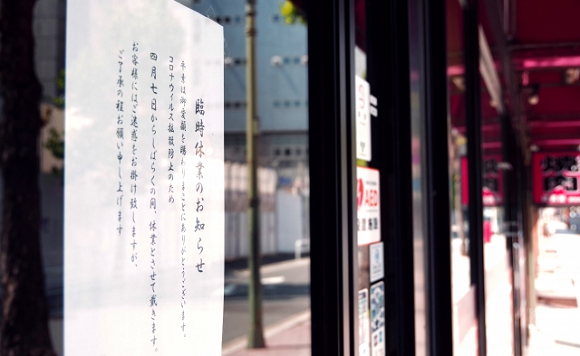 臨時休業のお知らせ
平素は御愛顧を賜わりまことにありがとうございます。
コロナウイルス拡散防止のため
四月七日からしばらくの間、休業とさせて戴きます。
お客様にはご迷惑をお掛け致しますが、
ご了承の程お願い申し上げます
AED
焼肉